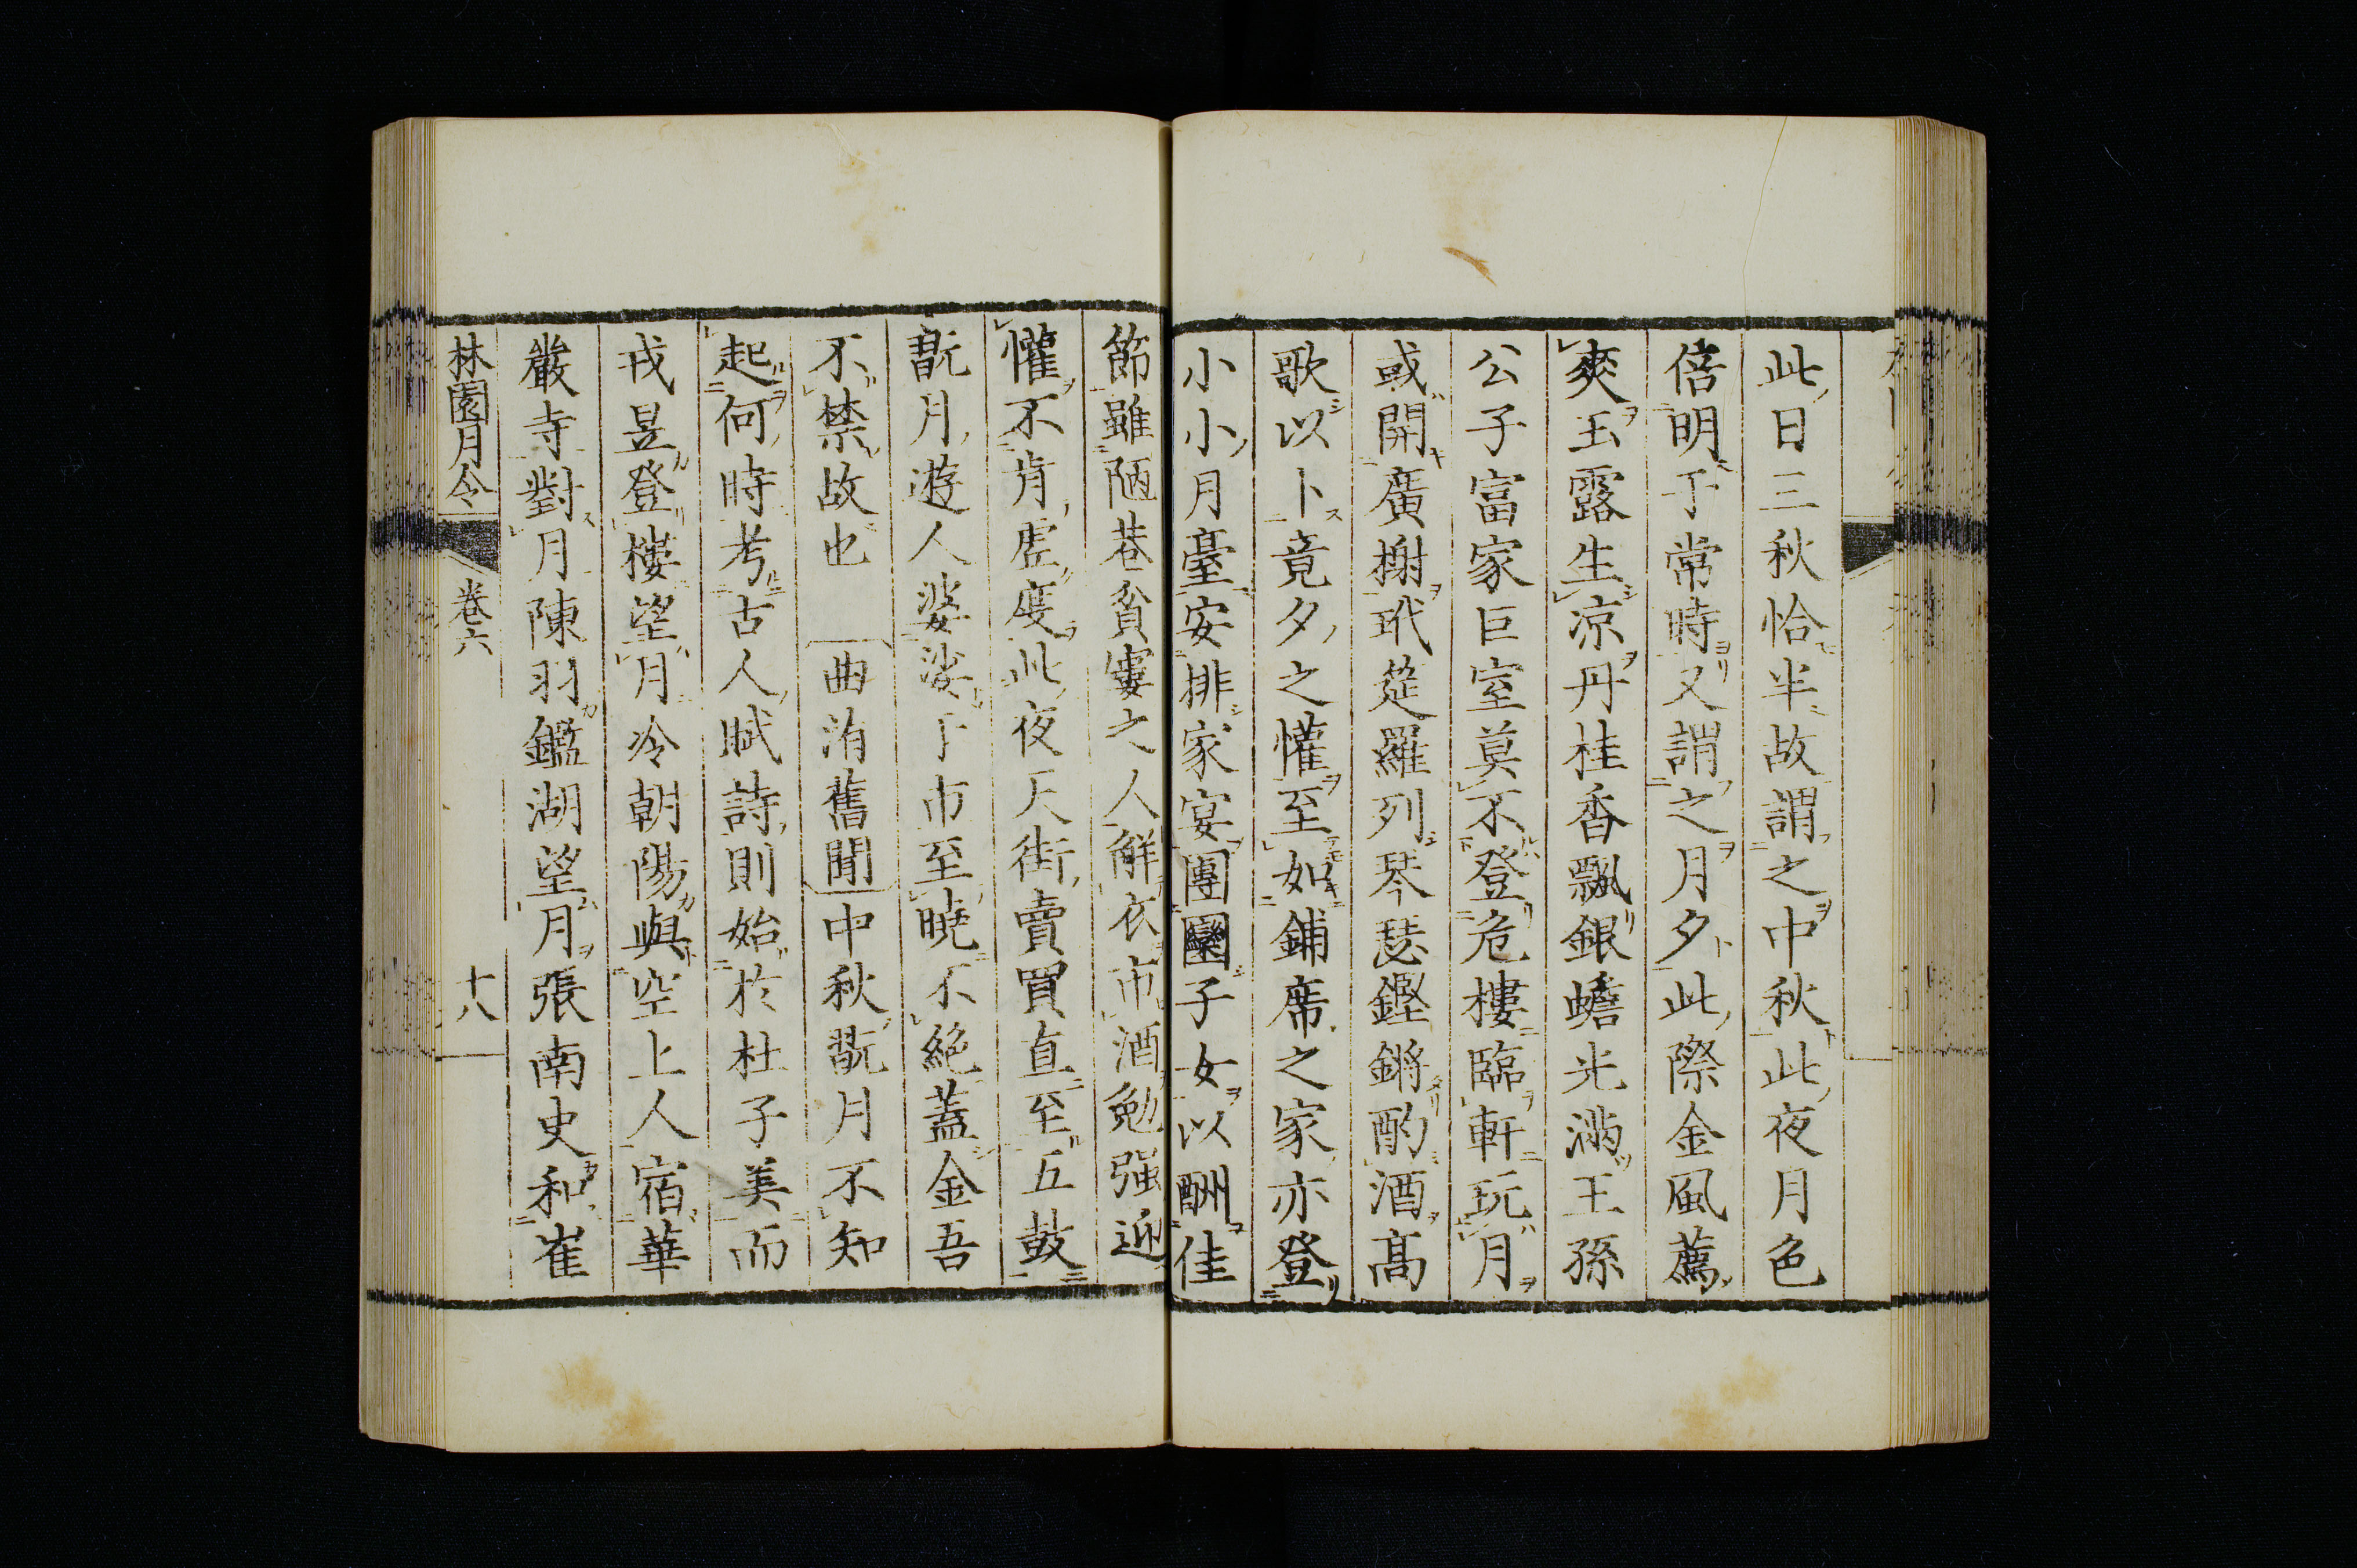 此日三秋恰半故謂之中秋此夜月色
倍明于常時又謂之月夕此際金風薦
爽玉露生凉丹桂香飄銀蟾光滿王孫
公子富家巨室莫不登危樓臨軒玩月
或開廣榭玳筵羅列琴瑟鏗鏘酌酒高
歌以卜竟夕之懽至如鋪席之家亦登
小小月臺安排家宴團圞子女以酬佳
節雖陋巷貧窶之人解衣市酒勉强迎
懽不肯虛度此夜天街賣買直至五鼓
翫月遊人婆娑于市至曉不絶蓋金吾
不禁故也 曲洧舊聞 中秋翫月不知
起何時考古人賦詩則始於杜子美而
戎昱登樓望月冷朝陽與空上人宿華
嚴寺對月陳羽鑑湖望月張南史和崔
林園月令 卷六 十八